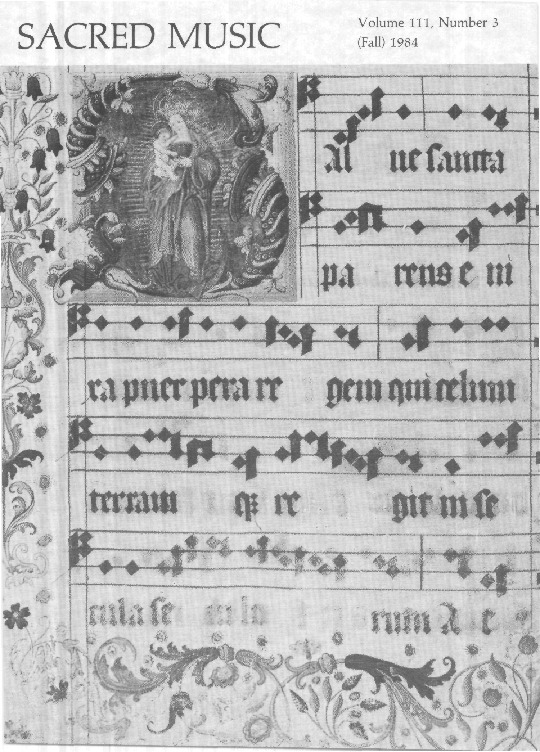 SACRED MUSIC
Volume 111, Number 3
(Fall) 1984
al ue sancta
pa rens e ni
ra puer pera re gem qui celum
terram qꝫ re git in se
cula se rum A e